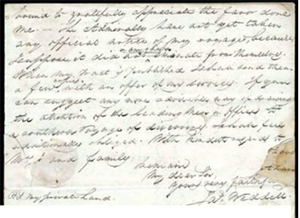 bound to gratefully appreciate the favor done
me. — The Admonalty have not yet taken
any official notice of my voyage, because
I suppose it did not emanate from themselves
When my Tract is published I shall send them
a few with an offer of my services. If you
can suggest any more advisable way of drawing
the attention of the Leading Men in Office to
a southern Voyage of discovery I shall feel
obliged. With kind regards to
Mrs and family
I remain
My dear Sir
Yours very faithfully
Jas. Weddell
P.S. my private hand.